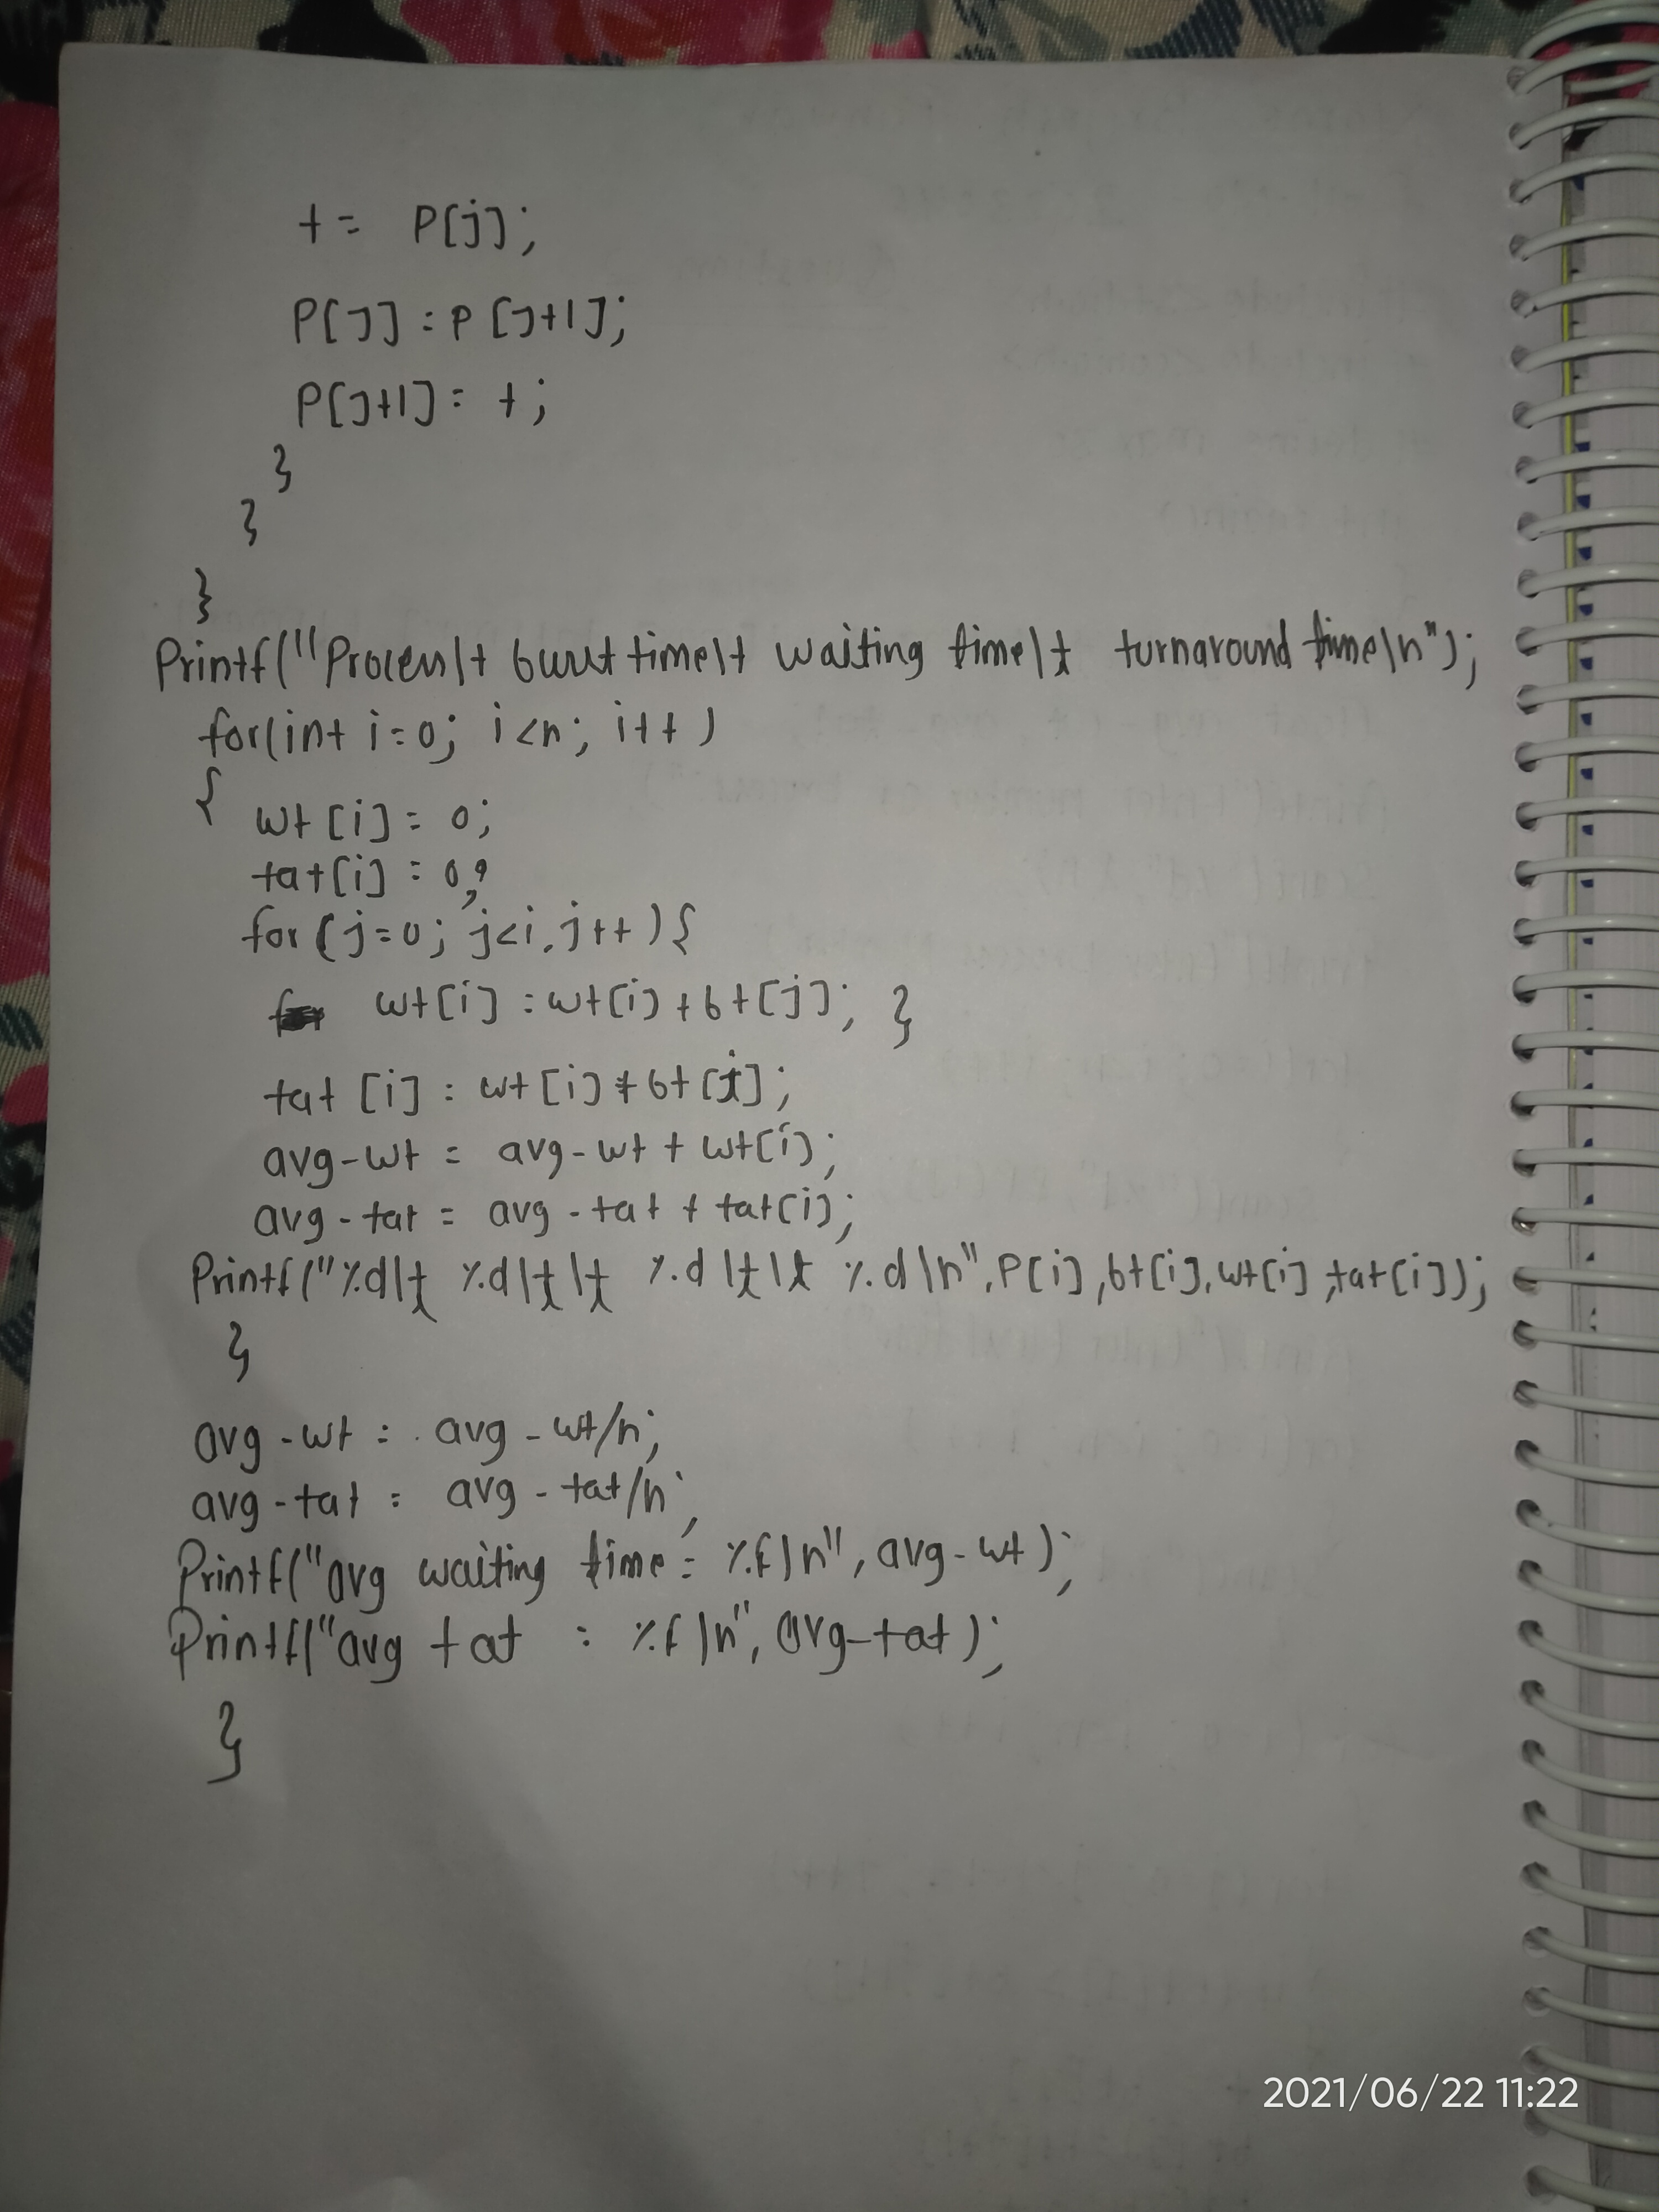 t = P[j];
P[J] = P[J+1];
P[J+1] = t;
}
}
}
Printf("Process\t burst time\t waiting time\t turnaround time\n");
for(int i=0; i<n; i++)
{
wt[i] = 0;
tat[i] = 0;
for (j=0; j<i, j++){
wt[i] = wt[i]+bt[j]; }
tat [i] = wt[i]+bt[i];
avg-wt = avg-wt + wt[i];
avg-tat = avg-tat + tat[i];
Printf("%d\t %d\t\t %d\t\t %d\n", P[i], bt[i], wt[i], tat[i]);
}
avg-wt = avg-wt/n;
avg-tat = avg-tat/n;
Printf("avg waiting time = %f\n", avg-wt);
Printf("avg tat = %f\n", avg-tat);
}
2021/06/22 11:22